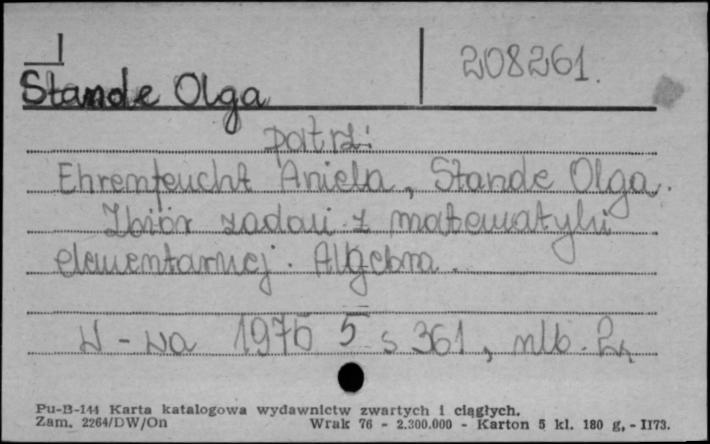 I
208261.
Stande Olga
patrz:
Ehrenfeucht Aniela, Stande Olga.
Zbiór zadań z matematyki
elementarnej. Algebra.
W-wa 1976 5 s 361, nlb. 2
Pu-B-144 Karta katalogowa wydawnictw zwartych i ciągłych.
Zam. 2264/DW/On Wrak 76 - 2.300.000 - Karton 5 kl. 180 g, - II73.